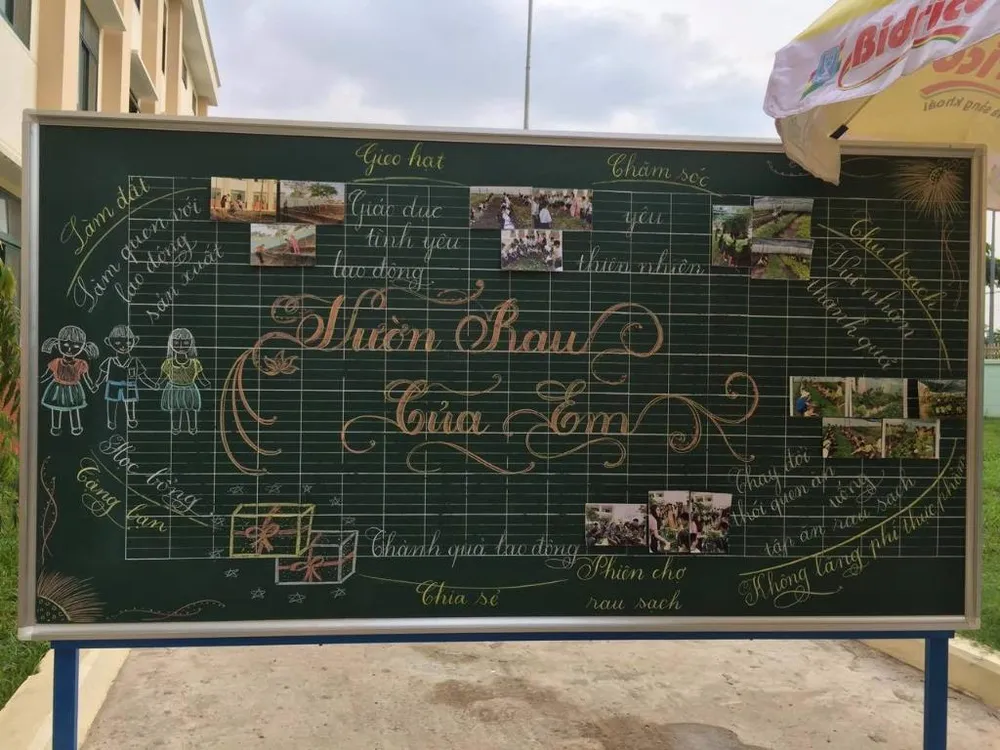 Gieo hạt
Chăm sóc
Làm đất
Làm quen với
lao động
sản xuất
Giáo dục
tình yêu
lao động
yêu
thiên nhiên
Thu hoạch
Thu nhận
thành quả
Vườn Rau
Của Em
Học bổng
Tặng bạn
Thay đổi
thói quen ăn uống
tập ăn rau sạch
Không lãng phí thực phẩm
Thành quả lao động
Chia sẻ
Phiên chợ
rau sạch
Bidrico